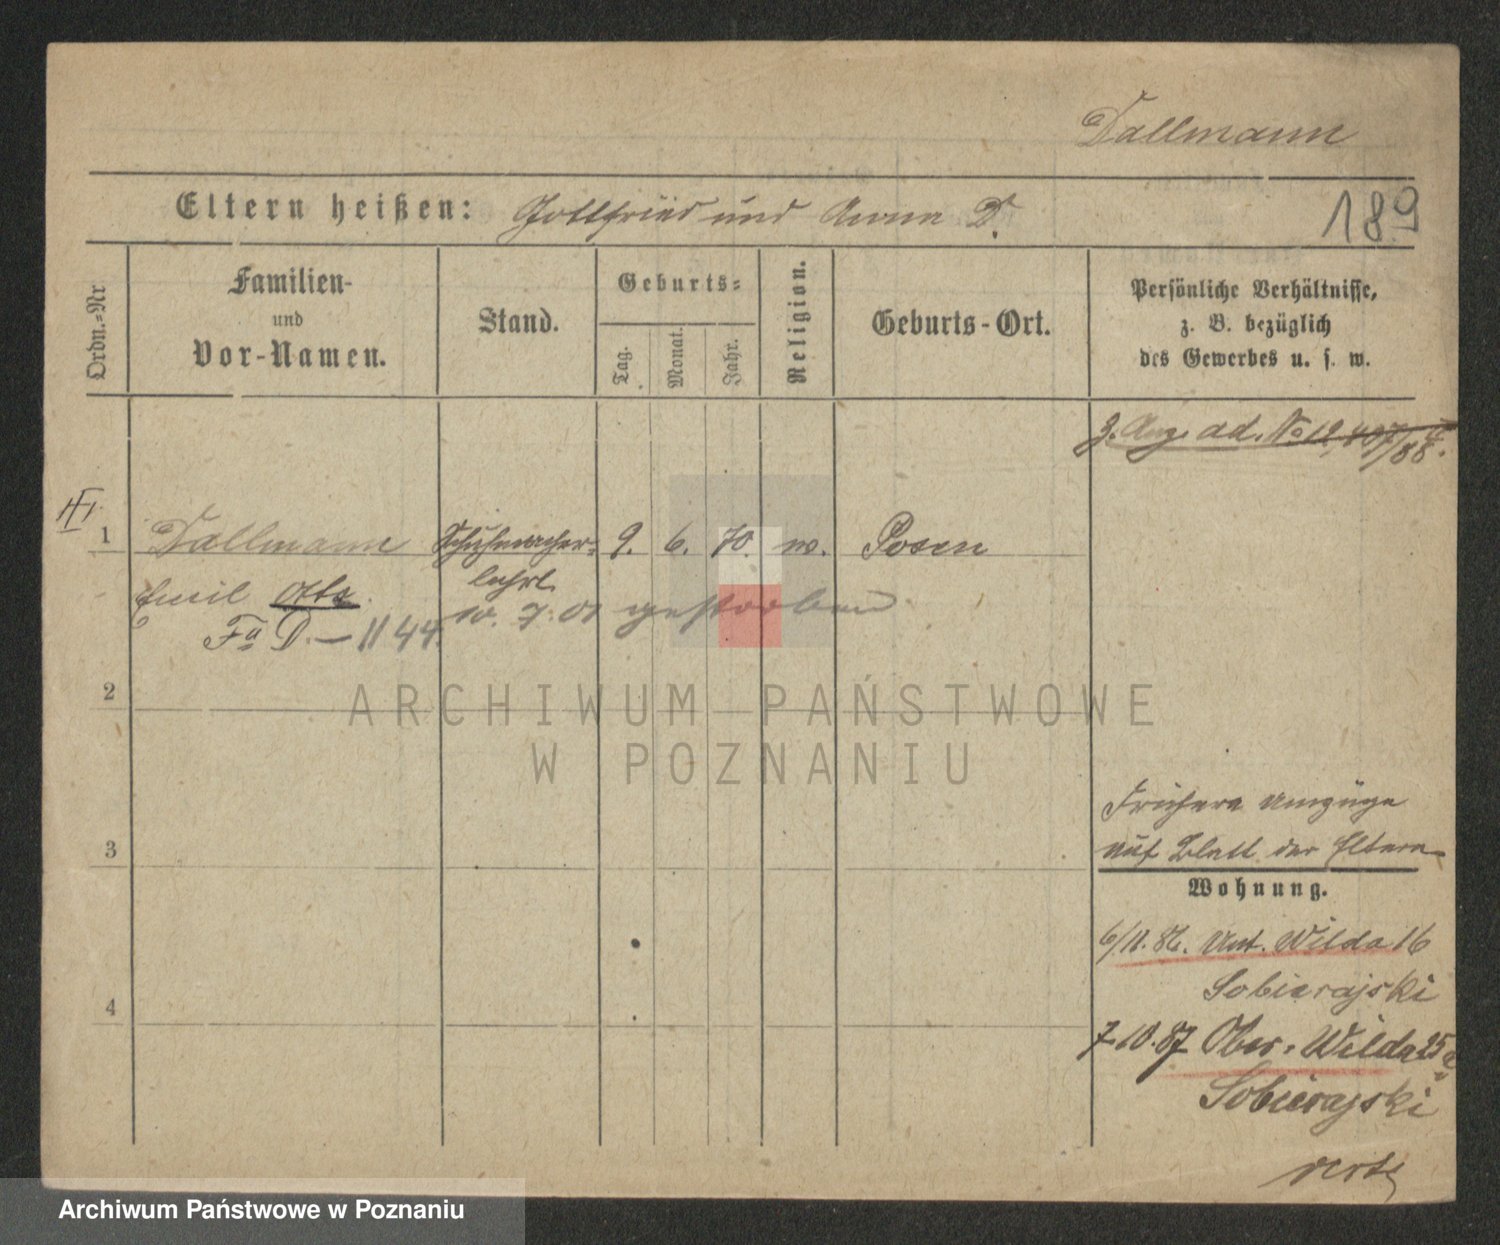 Dallmann
Eltern heißen: Gottfried und Anna D.
189
Ordn.-Nr
Familien-
und
Vor-Namen.
Stand.
Geburts-
Tag.
Monat.
Jahr.
Religion.
Geburts-Ort.
Persönliche Verhältnisse,
z. B. bezüglich
des Gewerbes u. s. w.
3. Aug. ad. No
1
Dallmann
Schuhmacher-
9. 6. 70.
Posen
Emil Otto.
lehrl.
7. 01 gestorben
Fa D. — II 44.
2
ARCHIWUM PAŃSTWOWE
W POZNANIU
Frühere Umzüge
3
auf Blatt der Eltern
Wohnung.
6/11. 86. Unt. Wilda 16
Sobierajski
4
7.10.87 Ober-Wilda 25
Sobierajski
verte
Archiwum Państwowe w Poznaniu